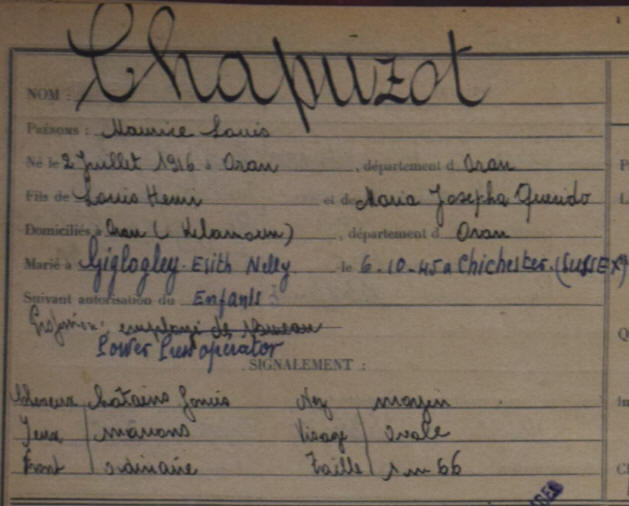 Chapuzot
NOM :
Prénoms : Maurice Louis
Né le 2 Juillet 1916 à Oran , département d Oran
Fils de Louis Henri et de Maria Josepha Querido
Domiciliés à Oran ( ) , département d Oran
Marié à Giglogley - Esith Nelly le 6-10-45 à Chichester. (SUSSEX)
Suivant autorisation du Enfants
Profession: employé de bureau
Power Press operator
SIGNALEMENT :
Cheveux chatains foncés Nez moyen
Yeux marrons Visage Ovale
Front ordinaire Taille 1m66